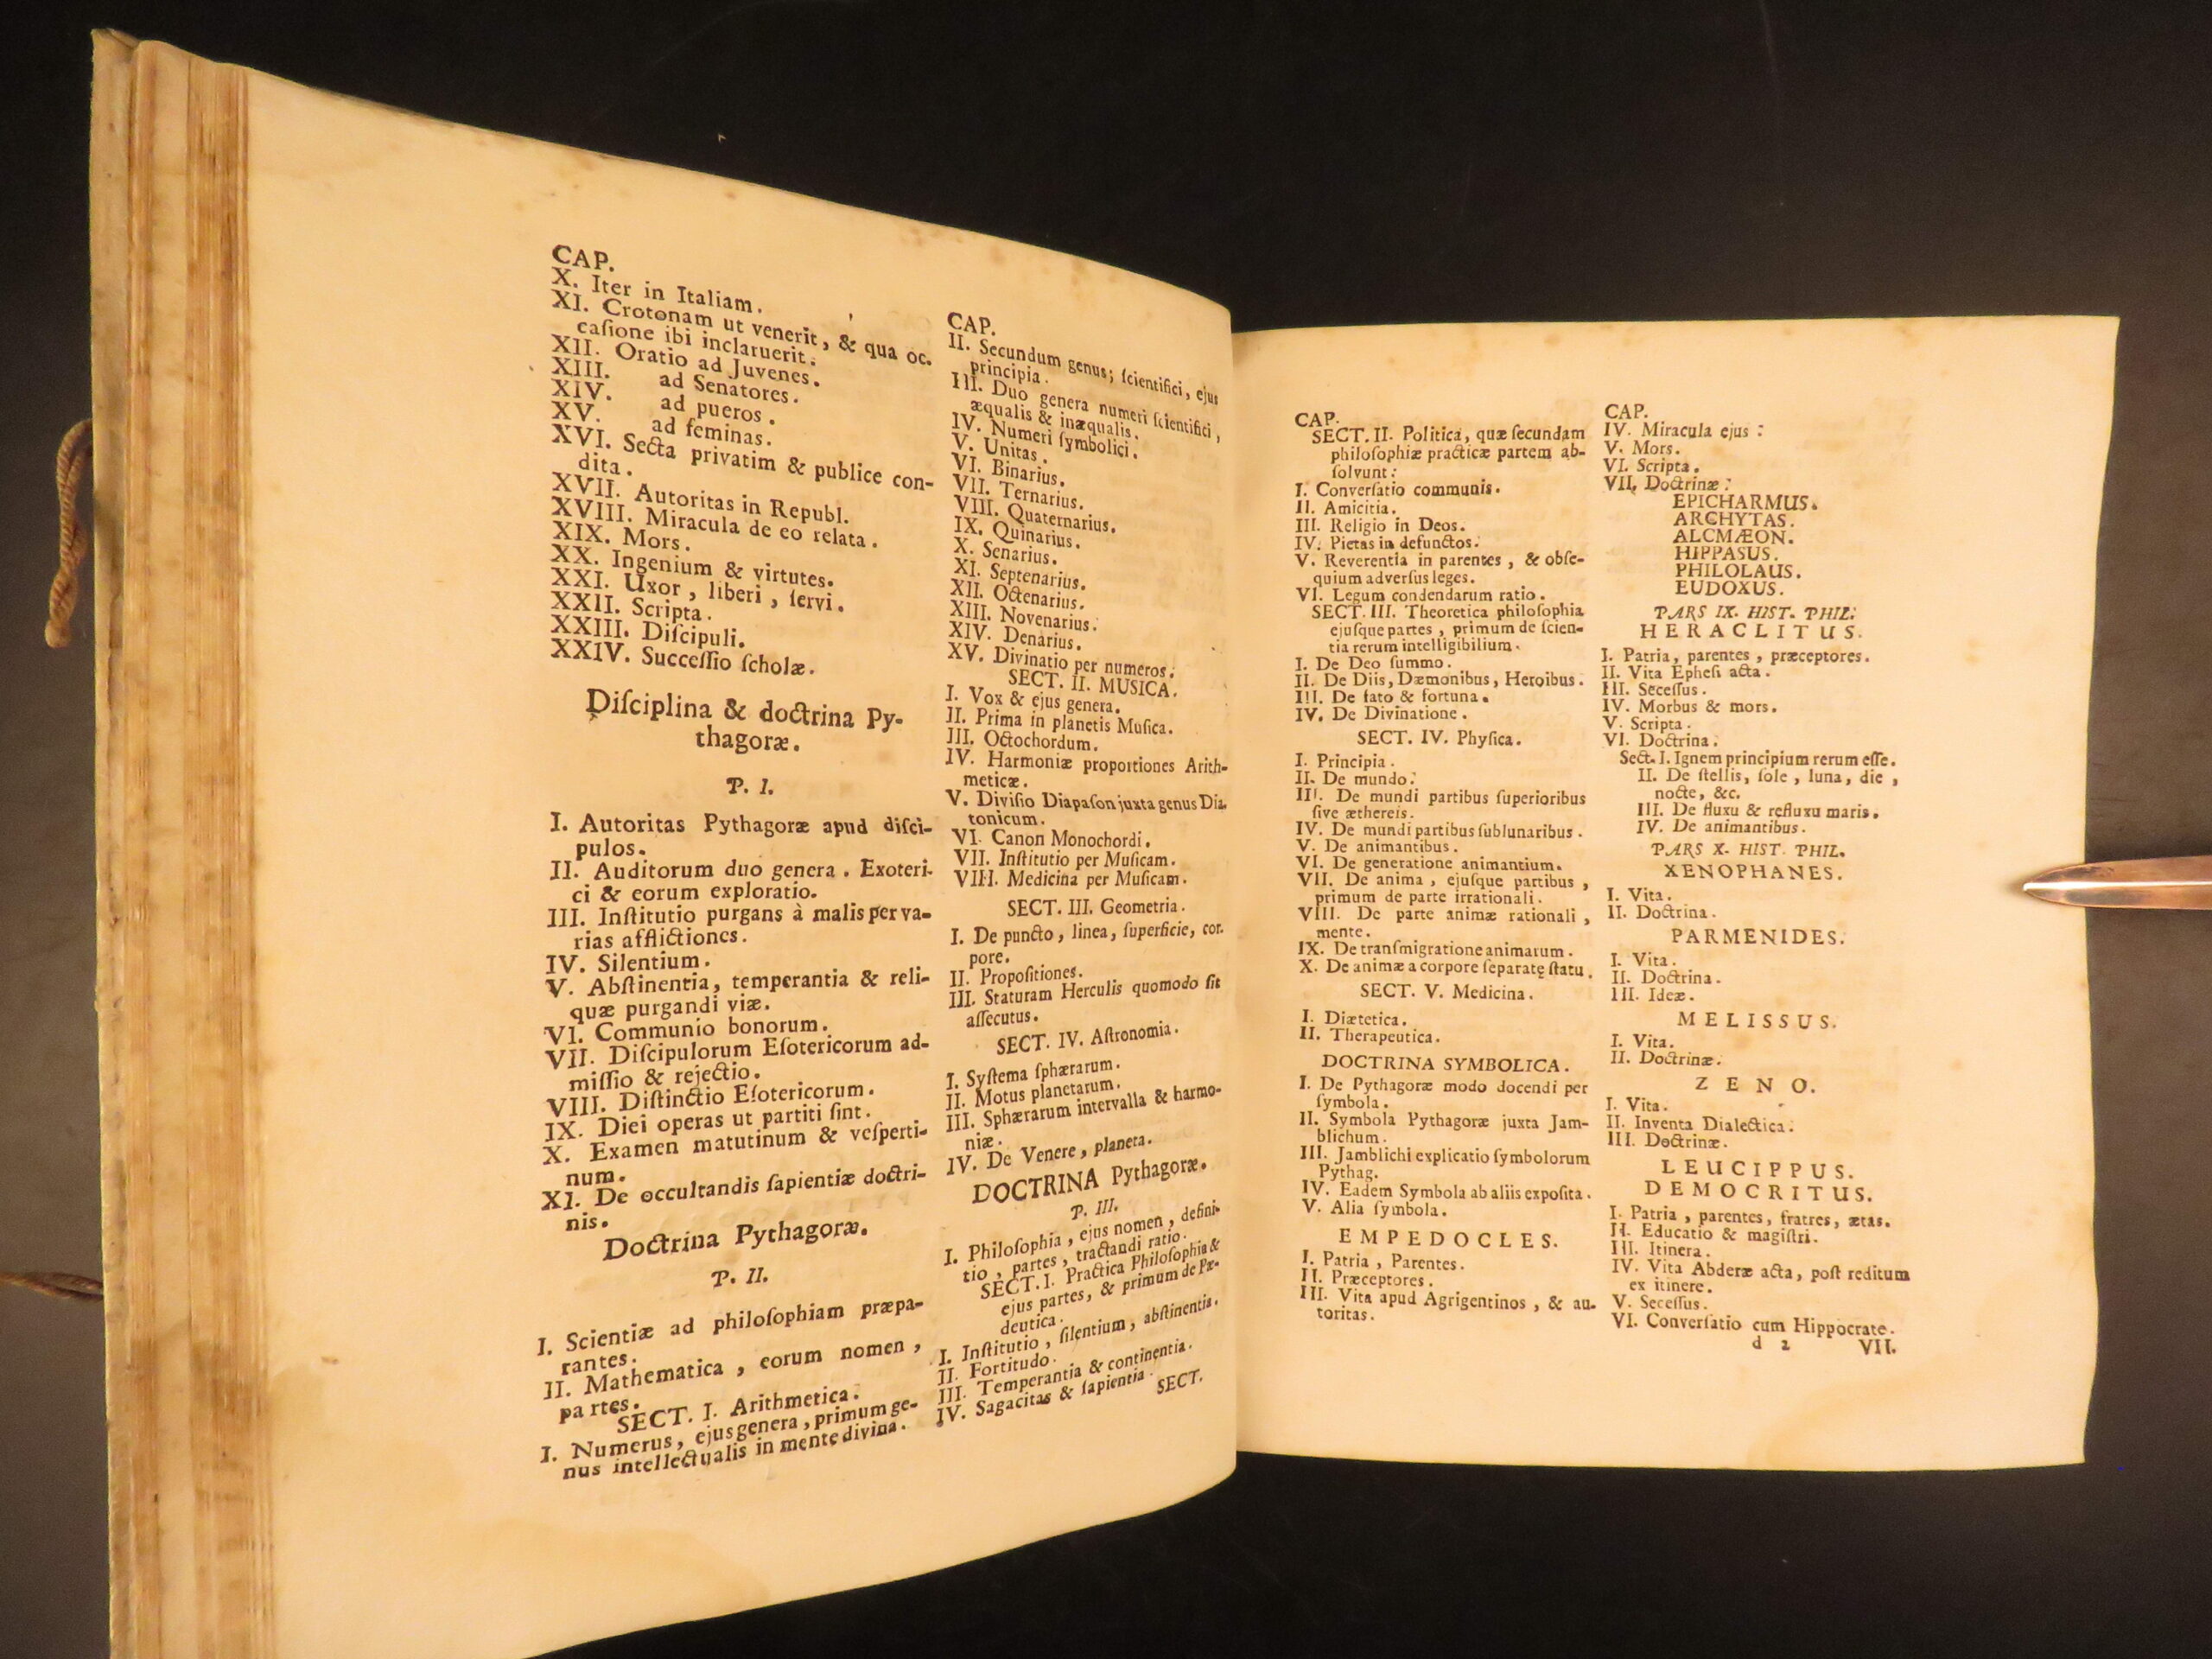 CAP.
X. Iter in Italiam.
XI. Crotonam ut venerit, & qua oc.
caſione ibi inclaruerit.
XII. Oratio ad Juvenes.
XIII. ad Senatores.
XIV. ad pueros.
XV. ad feminas.
XVI. Secta privatim & publice con-
dita.
XVII. Autoritas in Republ.
XVIII. Miracula de eo relata.
XIX. Mors.
XX. Ingenium & virtutes.
XXI. Uxor, liberi, ſervi.
XXII. Scripta.
XXIII. Diſcipuli.
XXIV. Succeſſio ſcholæ.
Diſciplina & doctrina Py-
thagoræ.
P. I.
I. Autoritas Pythagoræ apud diſci-
pulos.
II. Auditorum duo genera. Exoteri-
ci & eorum exploratio.
III. Inſtitutio purgans à malis per va-
rias afflictiones.
IV. Silentium.
V. Abſtinentia, temperantia & reli-
quæ purgandi viæ.
VI. Communio bonorum.
VII. Diſcipulorum Eſotericorum ad-
miſſio & rejectio.
VIII. Diſtinctio Eſotericorum.
IX. Diei operas ut partiti ſint.
X. Examen matutinum & veſperti-
num.
XI. De occultandis ſapientiæ doctri-
nis.
Doctrina Pythagoræ.
P. II.
I. Scientiæ ad philoſophiam præpa-
rantes.
II. Mathematica, eorum nomen,
partes.
SECT. I. Arithmetica.
I. Numerus, ejus genera, primum ge-
nus intellectualis in mente divina.
CAP.
II. Secundum genus; ſcientifici, ejus
principia.
III. Duo genera numeri ſcientifici,
æqualis & inæqualis.
IV. Numeri ſymbolici.
V. Unitas.
VI. Binarius.
VII. Ternarius.
VIII. Quaternarius.
IX. Quinarius.
X. Senarius.
XI. Septenarius.
XII. Octenarius.
XIII. Novenarius.
XIV. Denarius.
XV. Divinatio per numeros.
SECT. II. MUSICA.
I. Vox & ejus genera.
II. Prima in planetis Muſica.
III. Octochordum.
IV. Harmoniæ proportiones Arith-
meticæ.
V. Diviſio Diapaſon juxta genus Dia-
tonicum.
VI. Canon Monochordi.
VII. Inſtitutio per Muſicam.
VIII. Medicina per Muſicam.
SECT. III. Geometria.
I. De puncto, linea, ſuperficie, cor.
pore.
II. Propoſitiones.
III. Staturam Herculis quomodo ſit
aſſecutus.
SECT. IV. Aſtronomia.
I. Syſtema ſphærarum.
II. Motus planetarum.
III. Sphærarum intervalla & harmo-
niæ.
IV. De Venere, planeta.
DOCTRINA Pythagoræ.
P. III.
I. Philoſophia, ejus nomen, defini-
tio, partes, tractandi ratio.
SECT. I. Practica Philoſophia &
ejus partes, & primum de Pæ-
deutica.
I. Inſtitutio, ſilentium, abſtinentia.
II. Fortitudo.
III. Temperantia & continentia.
IV. Sagacitas & ſapientia.
SECT.
CAP.
SECT. II. Politica, quæ ſecundam
philoſophiæ practicæ partem ab-
ſolvunt:
I. Converſatio communis.
II. Amicitia.
III. Religio in Deos.
IV. Pietas in defunctos.
V. Reverentia in parentes, & obſe-
quium adverſus leges.
VI. Legum condendarum ratio.
SECT. III. Theoretica philoſophia
ejuſque partes, primum de ſcien-
tia rerum intelligibilium.
I. De Deo ſummo.
II. De Diis, Dæmonibus, Heroibus.
III. De fato & fortuna.
IV. De Divinatione.
SECT. IV. Phyſica.
I. Principia.
II. De mundo.
III. De mundi partibus ſuperioribus
ſive æthereis.
IV. De mundi partibus ſublunaribus.
V. De animantibus.
VI. De generatione animantium.
VII. De anima, ejuſque partibus,
primum de parte irrationali.
VIII. De parte animæ rationali,
mente.
IX. De tranſmigratione animarum.
X. De animæ a corpore ſeparatę ſtatu.
SECT. V. Medicina.
I. Diætetica.
II. Therapeutica.
DOCTRINA SYMBOLICA.
I. De Pythagoræ modo docendi per
ſymbola.
II. Symbola Pythagoræ juxta Jam-
blichum.
III. Jamblichi explicatio ſymbolorum
Pythag.
IV. Eadem Symbola ab aliis expoſita.
V. Alia ſymbola.
EMPEDOCLES.
I. Patria, Parentes.
II. Præceptores.
III. Vita apud Agrigentinos, & au-
toritas.
CAP.
IV. Miracula ejus:
V. Mors.
VI. Scripta.
VII. Doctrinæ:
EPICHARMUS.
ARCHYTAS.
ALCMÆON.
HIPPASUS.
PHILOLAUS.
EUDOXUS.
PARS IX. HIST. PHIL.
HERACLITUS.
I. Patria, parentes, præceptores.
II. Vita Epheſi acta.
III. Seceſſus.
IV. Morbus & mors.
V. Scripta.
VI. Doctrina.
Sect. I. Ignem principium rerum eſſe.
II. De ſtellis, ſole, luna, die,
nocte, &c.
III. De fluxu & refluxu maris.
IV. De animantibus.
PARS X. HIST. PHIL.
XENOPHANES.
I. Vita.
II. Doctrina.
PARMENIDES.
I. Vita.
II. Doctrina.
III. Ideæ.
MELISSUS.
I. Vita.
II. Doctrinæ.
ZENO.
I. Vita.
II. Inventa Dialectica.
III. Doctrinæ.
LEUCIPPUS.
DEMOCRITUS.
I. Patria, parentes, fratres, ætas.
II. Educatio & magiſtri.
III. Itinera.
IV. Vita Abderæ acta, poſt reditum
ex itinere.
V. Seceſſus.
VI. Converſatio cum Hippocrate.
d 2 VII.